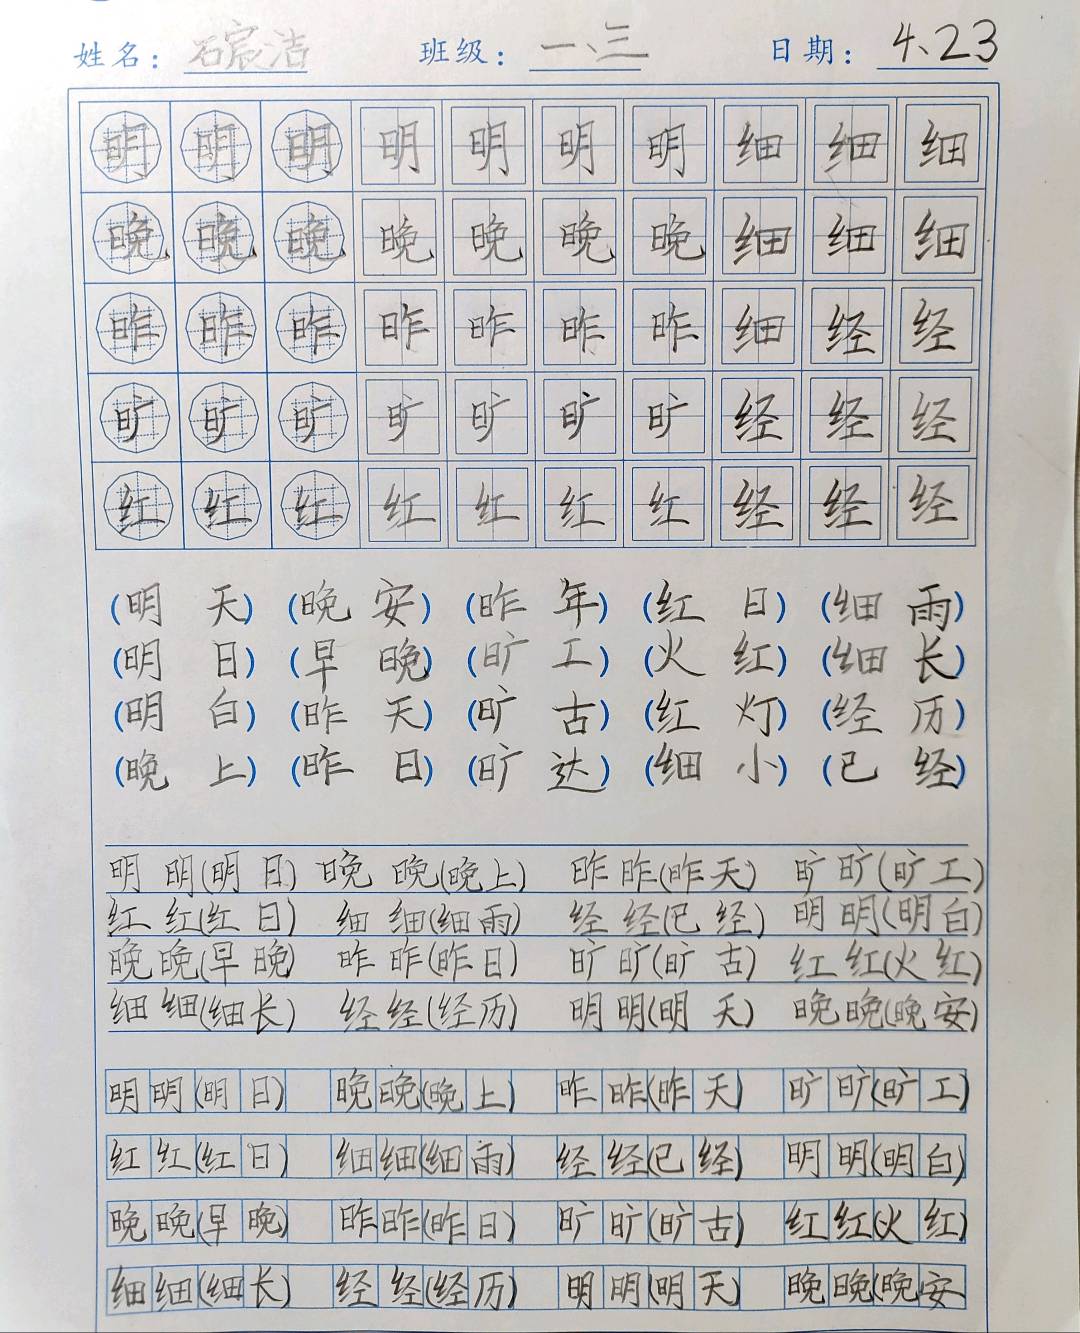 姓名：石宸洁 班级：一、三 日期：4、23
明 明 明 明 明 明 明 细 细 细
晚 晚 晚 晚 晚 晚 晚 细 细 细
昨 昨 昨 昨 昨 昨 昨 细 经 经
旷 旷 旷 旷 旷 旷 旷 经 经 经
红 红 红 红 红 红 红 经 经 经
(明 天) (晚 安) (昨 年) (红 日) (细 雨)
(明 日) (早 晚) (旷 工) (火 红) (细 长)
(明 白) (昨 天) (旷 古) (红 灯) (经 历)
(晚 上) (昨 日) (旷 达) (细 小) (已 经)
明 明(明 日) 晚 晚(晚上) 昨 昨(昨天) 旷 旷(旷工)
红 红(红 日) 细 细(细雨) 经 经(已经) 明 明(明白)
晚 晚(早 晚) 昨 昨(昨日) 旷 旷(旷 古) 红 红(火红)
细 细(细长) 经 经(经历) 明 明(明 天) 晚 晚(晚安)
明 明(明 日) 晚 晚(晚 上) 昨 昨(昨 天) 旷 旷(旷 工)
红 红(红 日) 细 细(细 雨) 经 经(已 经) 明 明(明 白)
晚 晚(早 晚) 昨 昨(昨 日) 旷 旷(旷 古) 红 红(火 红)
细 细(细 长) 经 经(经 历) 明 明(明 天) 晚 晚(晚 安